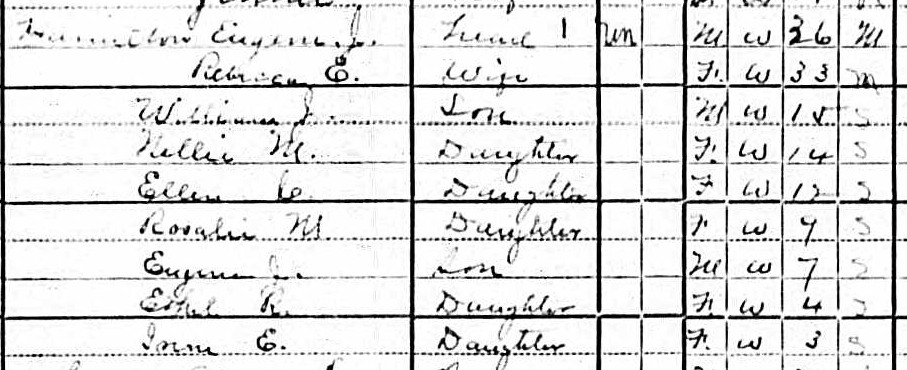 Hamilton Eugene J. Head 1 Rn M W 36 M
Rebecca E. Wife F. W 33 M
William J. Son M W 15 S
Nellie M. Daughter F. W 14 S
Ellen C. Daughter F W 12 S
Rosalie M Daughter F W 9 S
Eugene J. Son M W 7 S
Ethel R. Daughter F. W 4 S
Irene E. Daughter F. W 3 S